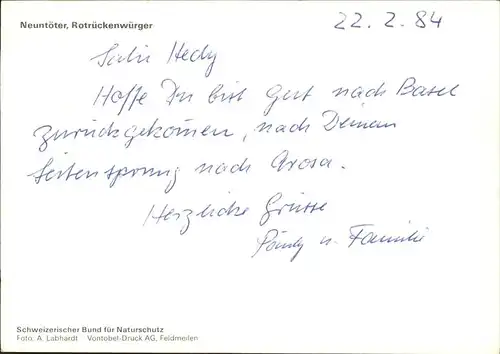 Neuntöter, Rotrückenwürger
22. 2. 84
Salü Hedy
Hoffe Du bist gut nach Basel
zurückgekommen, nach Deinem
Seitensprung nach Arosa.
Herzliche Grüsse
u. Familie
Schweizerischer Bund für Naturschutz
Foto: A. Labhardt Vontobel-Druck AG, Feldmeilen